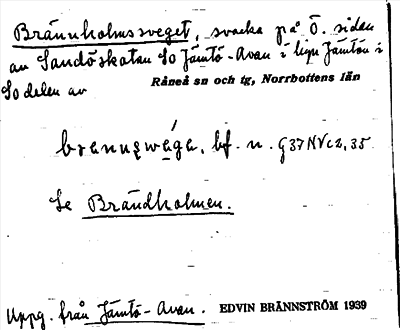 Brännholmssveget, svacka på Ö. sidan
av Sandöskatan So Jämtö-Avan i byn Jämtön i
So delen av Råneå sn och tg, Norrbottens län
bf. n. G37NVc2,35.
Se Brändholmen.
Uppg. från Jämtö-Avan. EDVIN BRÄNNSTRÖM 1939